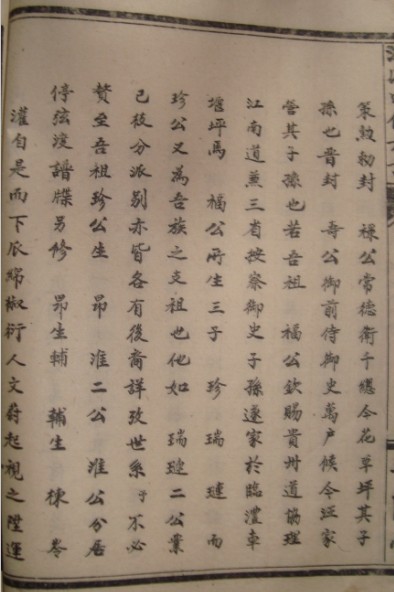 策勲勅封 祿公常德衛千總今花草坪其子
孫也晋封 壽公御前侍御史萬户候今坯家
營其子孫也若吾祖 福公欽賜貴州道協理
江南道兼三省按察御史子孫遂家於臨澧車
堰坪馬 福公所生三子 珍 瑞 璉 而
珍公又為吾族之支祖也他如 瑞璉二公業
已枝分派別亦皆各有後裔詳攷世系予不必
贅至吾祖珍公生 昂 淮二公 淮公分居
停弦渡譜牒另修 昂生輔 輔生 棟 岺
灌自是而下瓜綿椒衍人文蔚起視之陞運